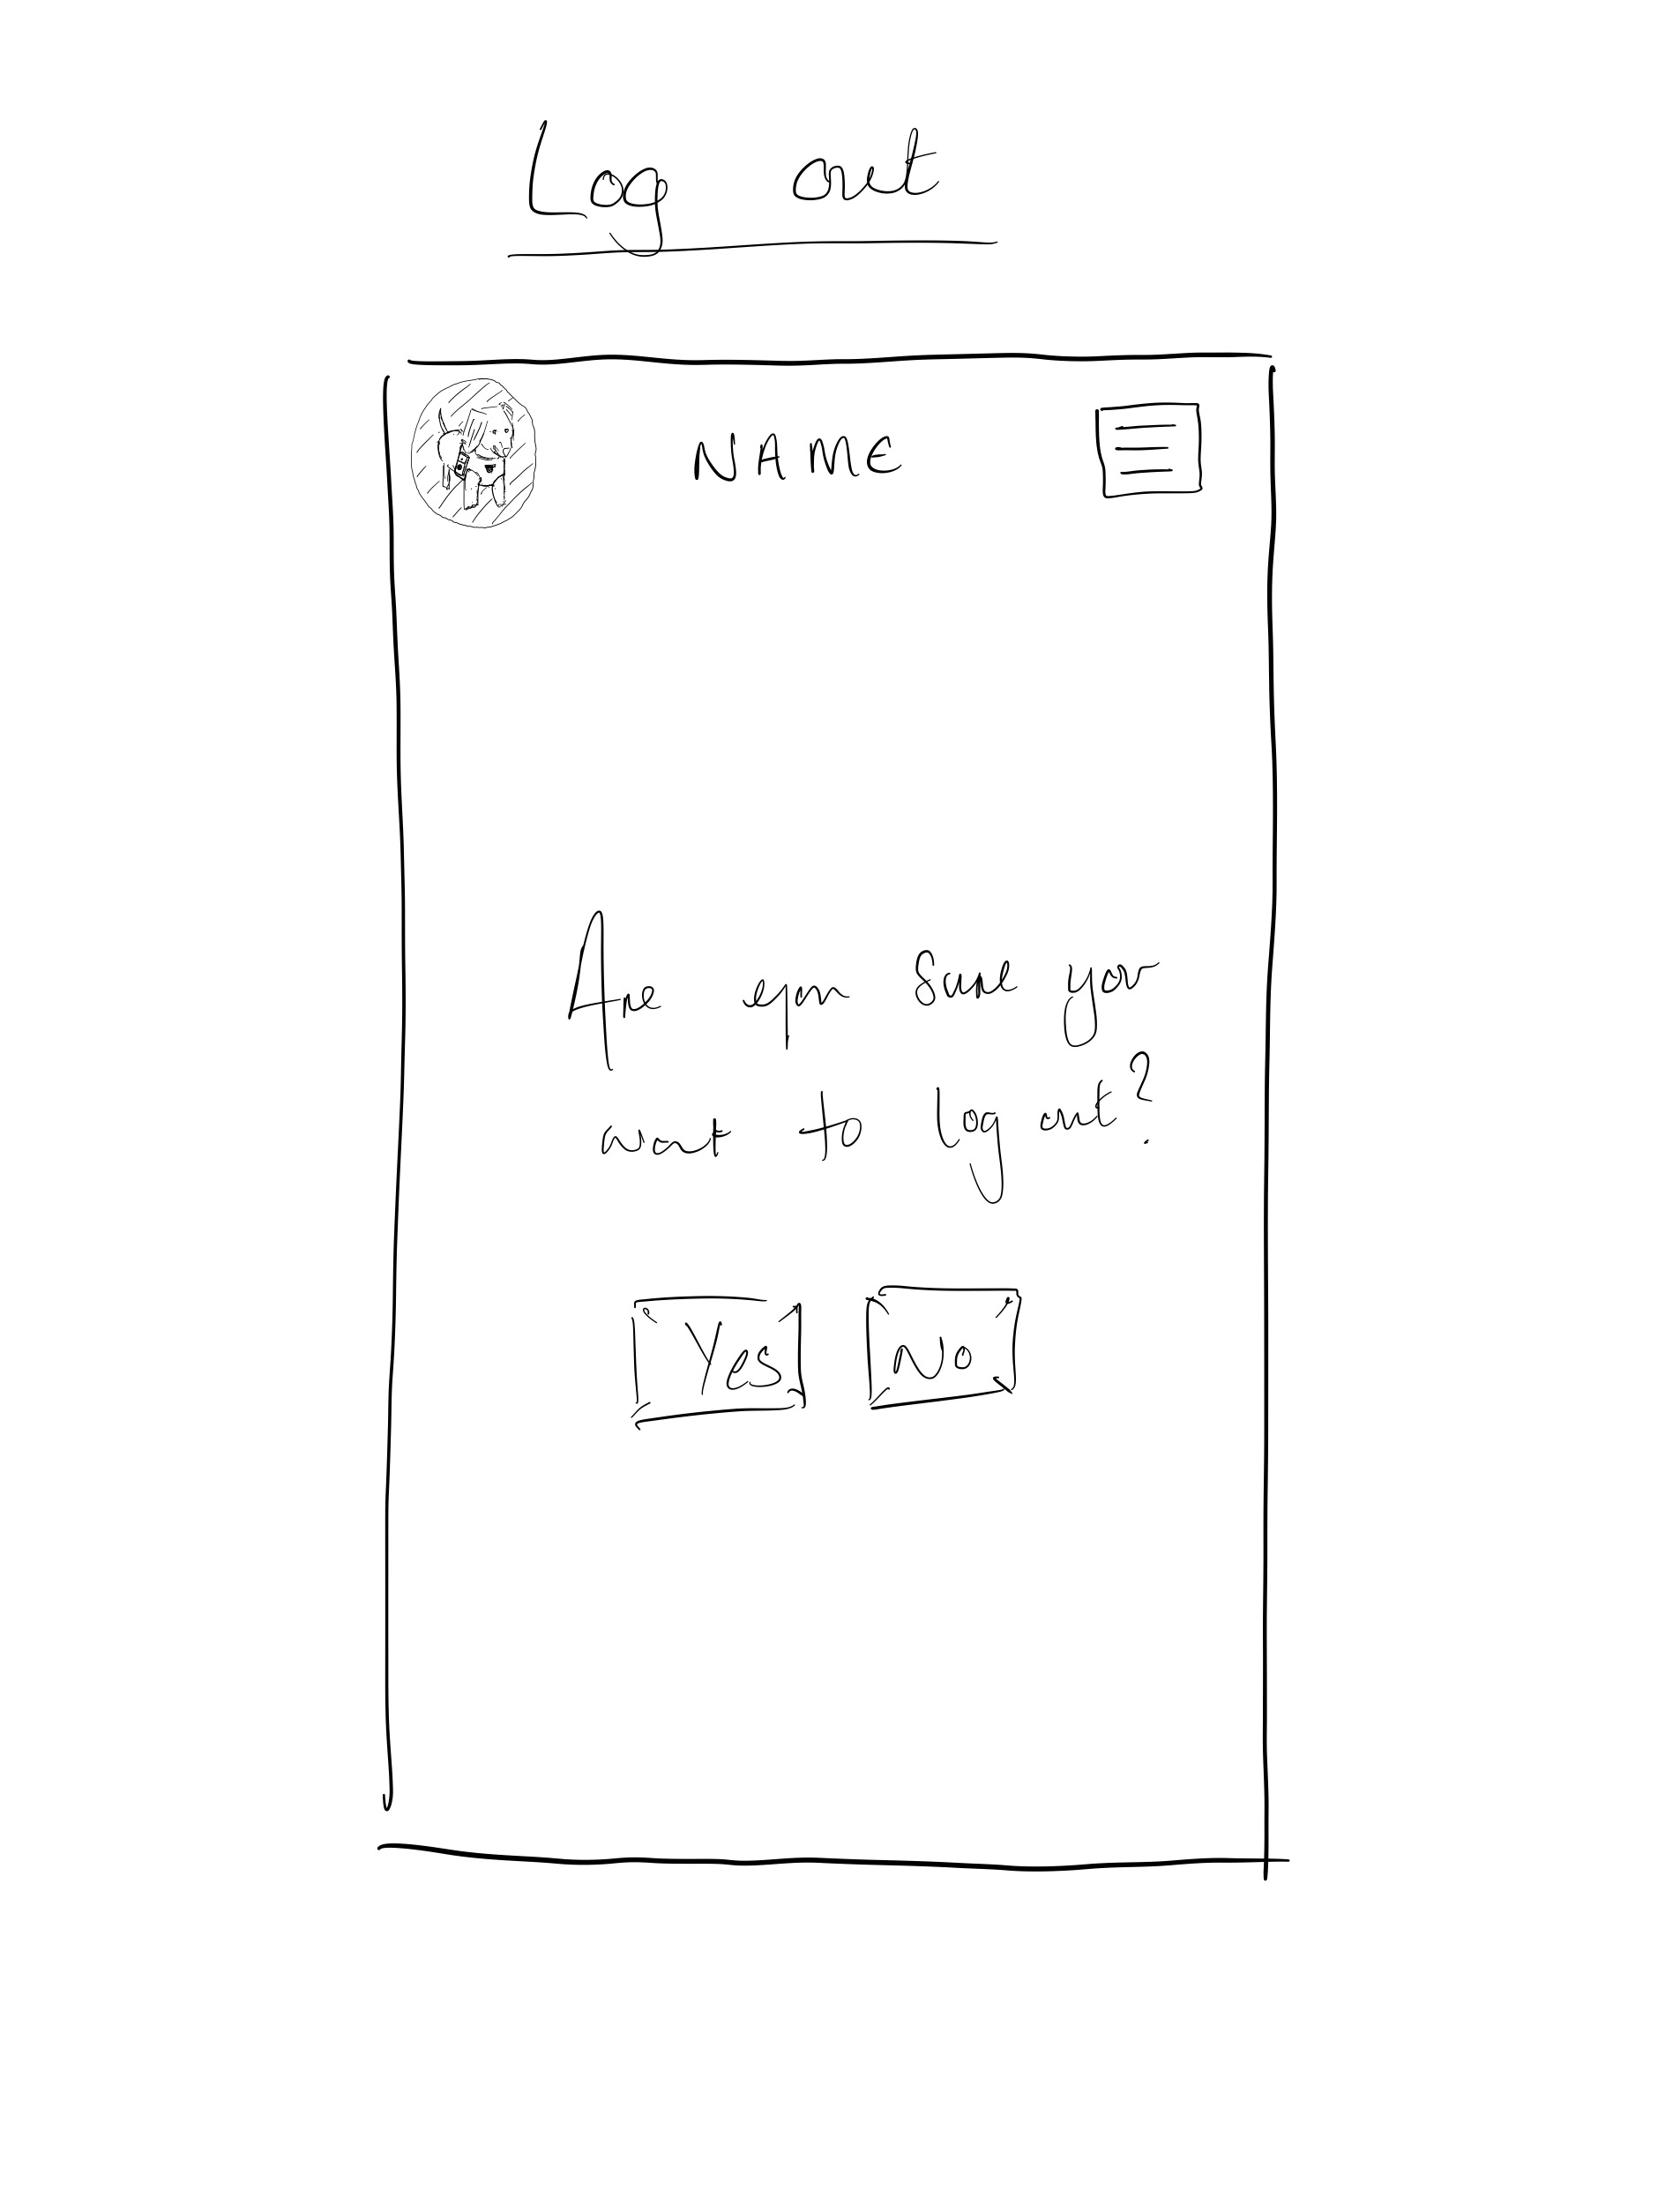 Log out
NAME
Are you sure you
want to log out?
Yes
No